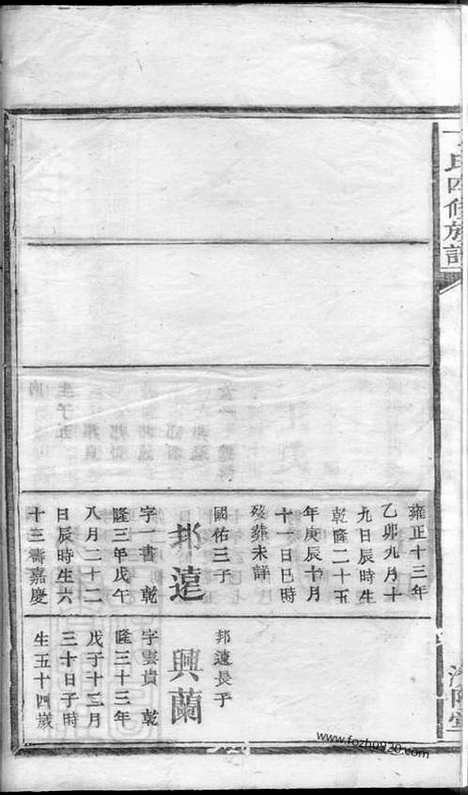 氏四修族譜
雍正十三年
乙卯九月十
九日辰時生
乾隆二十五
年庚辰十月
十一日巳時
歿葬未詳
國佑三子
邦遠
字一書 乾
隆三年戊午
八月二十二
日辰時生六
十三壽嘉慶
邦遠長子
興蘭
字雲貴 乾
隆三十三年
戊子十二月
三十日子時
生五十四歲
www.fozhu920.com